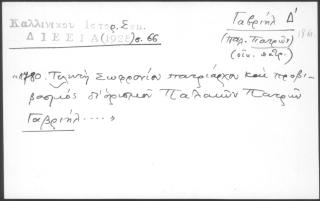 Καλλινίκου Ιστορ. Σημ.
ΔΙΕΕΙΑ (1928) σ. 66
Γαβριήλ Δ'
(παλ. Πατρών)
(οἰκ. πατρ.)
«1780. Τελευτὴ Σωφρονίου πατριάρχου καὶ προβι-
βασμὸς διορισμοῦ Παλαιῶν Πατρῶν
Γαβριήλ .... »